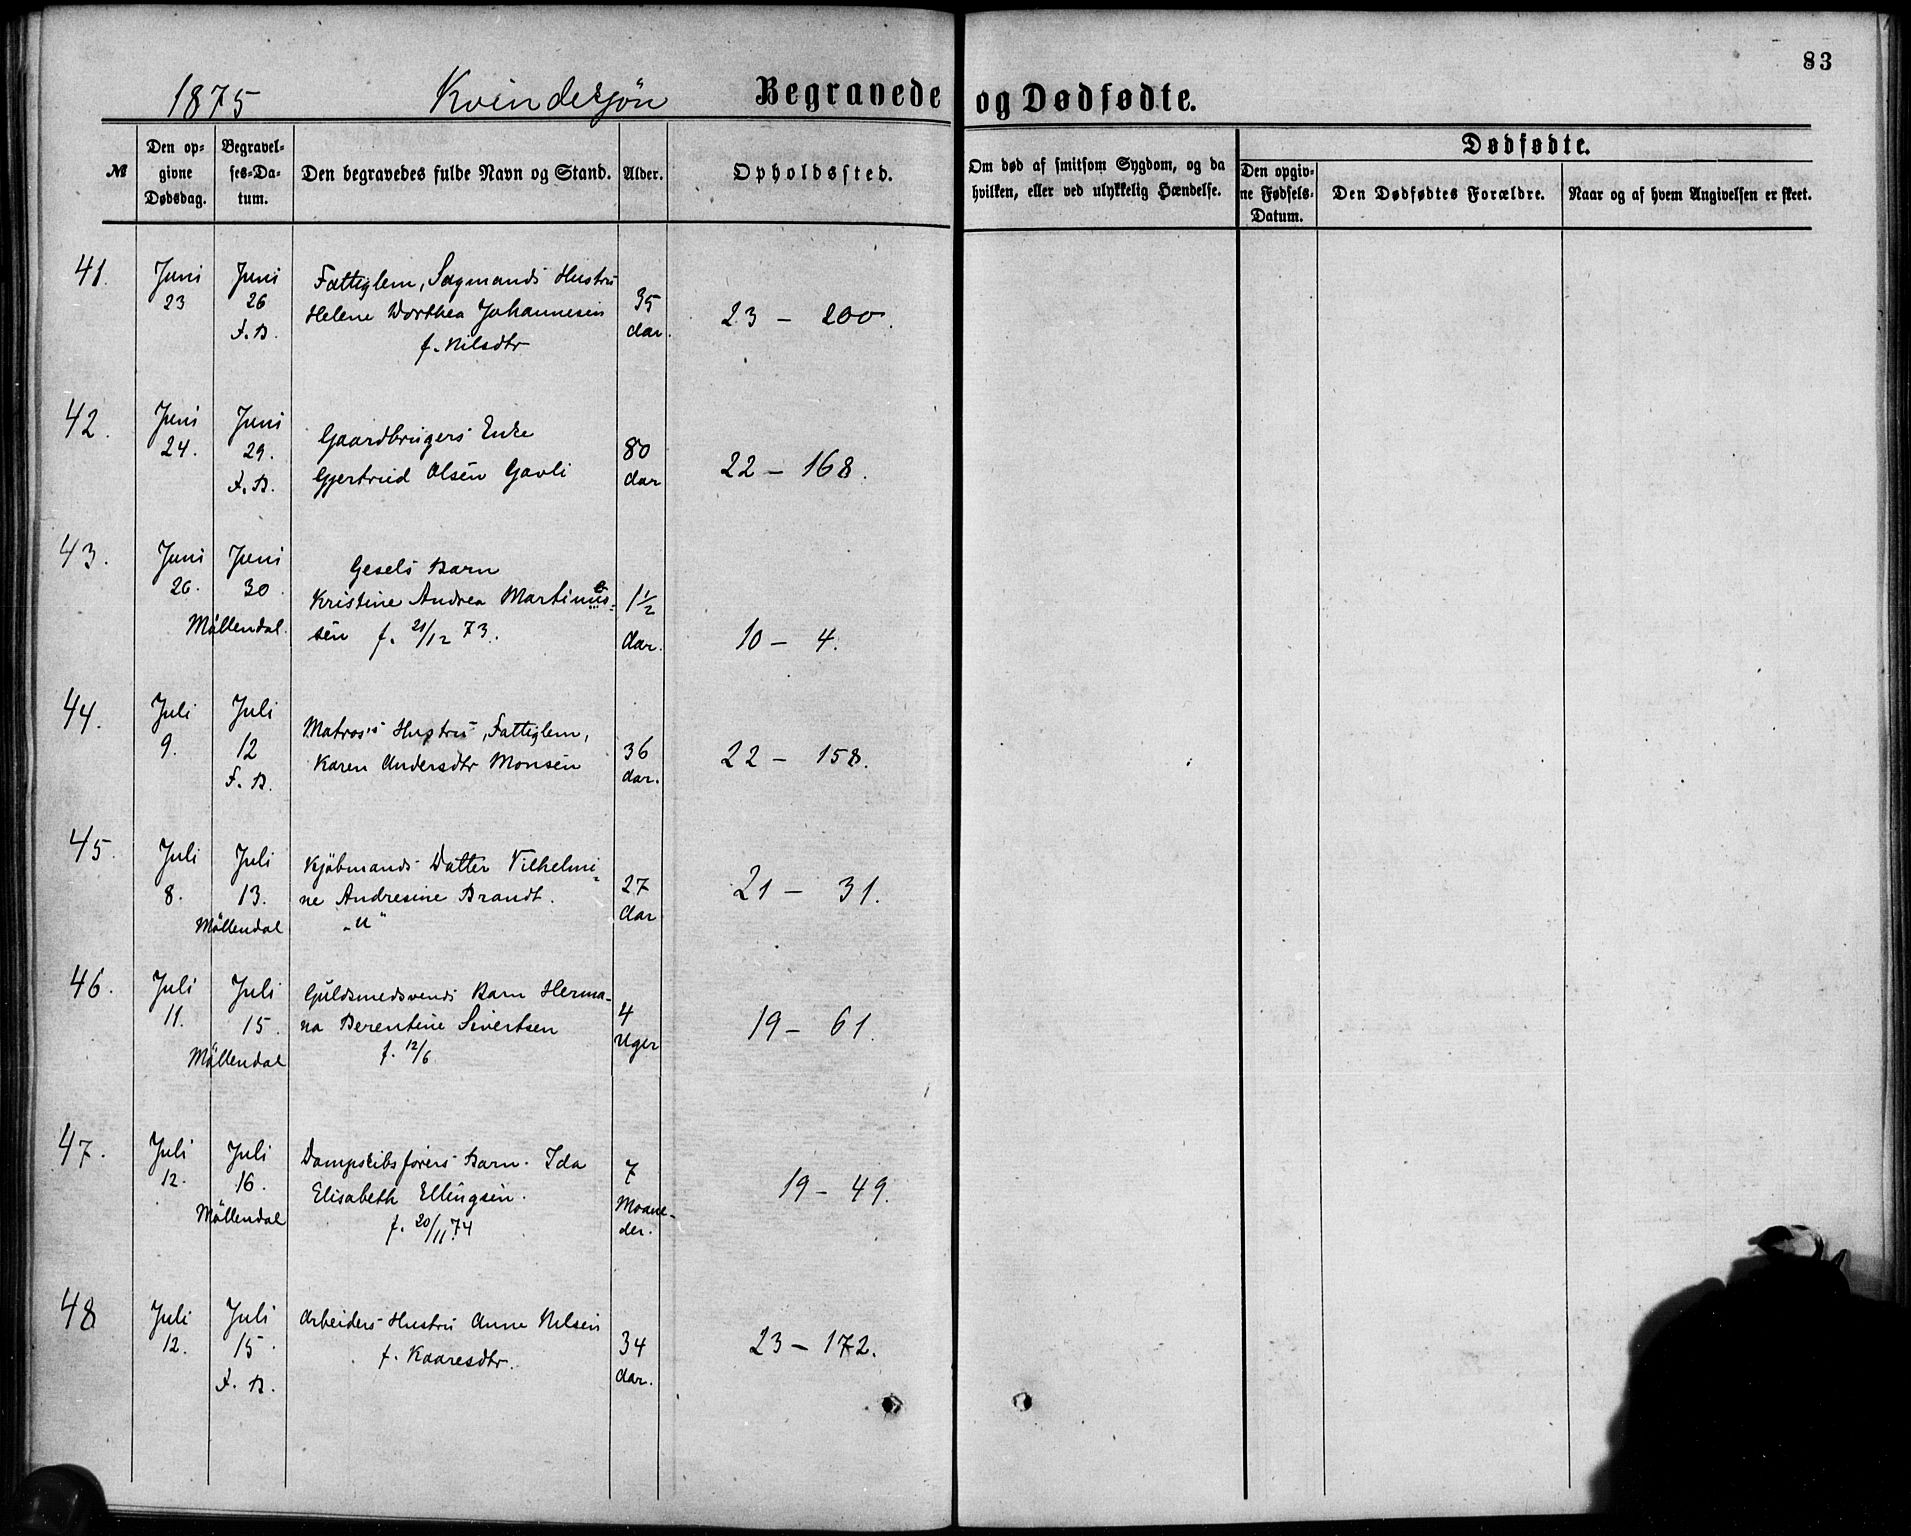 83
1875 Kvindekjön Begravede og Dødfødte.
№ Den opgivne Dødsdag. Begravelses-Datum. Den begravedes fulde Navn og Stand. Alder. Opholdssted. Om død af smitsom Sygdom, og da hvilken, eller ved ulykkelig Hændelse. Dødfødte.
Den opgivne Fødsels-Datum. Den Dødfødtes Forældre. Naar og af hvem Angivelsen er skeet.
41. Juni Juni Fattiglem, Sagmands Hustru
23 26 Helene Dorthea Johannesen 35 23 - 200.
F. B. f. Nilsdtr Aar.
42. Juni Juni Gaardbrugers Enke
24. 29. Gjertrud Olsen Gavli 80 22 - 168.
F. B. Aar
43. Juni Juni Gesels Barn
26. 30. Kristine Andrea Martinus- 1½
Möllendal. sen f. 21/12 73. Aar. 10 - 4.
44. Juli Juli Matros's Hustru, Fattiglem,
9. 12 Karen Andersdtr Monsen 36 22 - 158.
F. B. Aar.
45. Juli Juli Kjöbmands Datter Vilhelmi-
8. 13. ne Andresine Brandt. 27 21 - 31.
Möllendal „U“ Aar
46. Juli Juli Guldsmedsvends Barn Herma-
11. 15. na Berentine Sivertsen 4 19 - 61.
Möllendal f. 12/6 Uger
47. Juli Juli Dampskibsförers Barn. Ida 7
12. 16. Elisabeth Ellingsen. Maane- 19 - 49.
Möllendal f. 20/11 74 der.
48 Juli Juli Arbeiders Hustru Anne Nilsen
12. 15. f. Kaaresdtr. 34 23 - 172.
F. B. Aar.